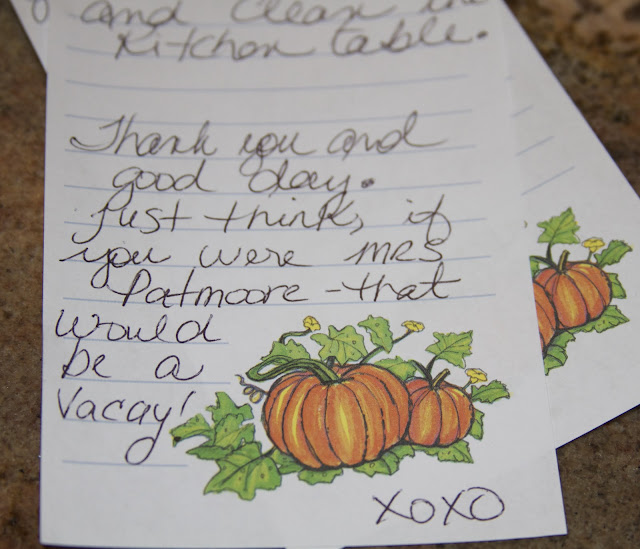 and clean the
kitchen table.
Thank you and
good day.
Just think, if
you were mrs
Patmoore - that
would
be a
vacay!
XOXO